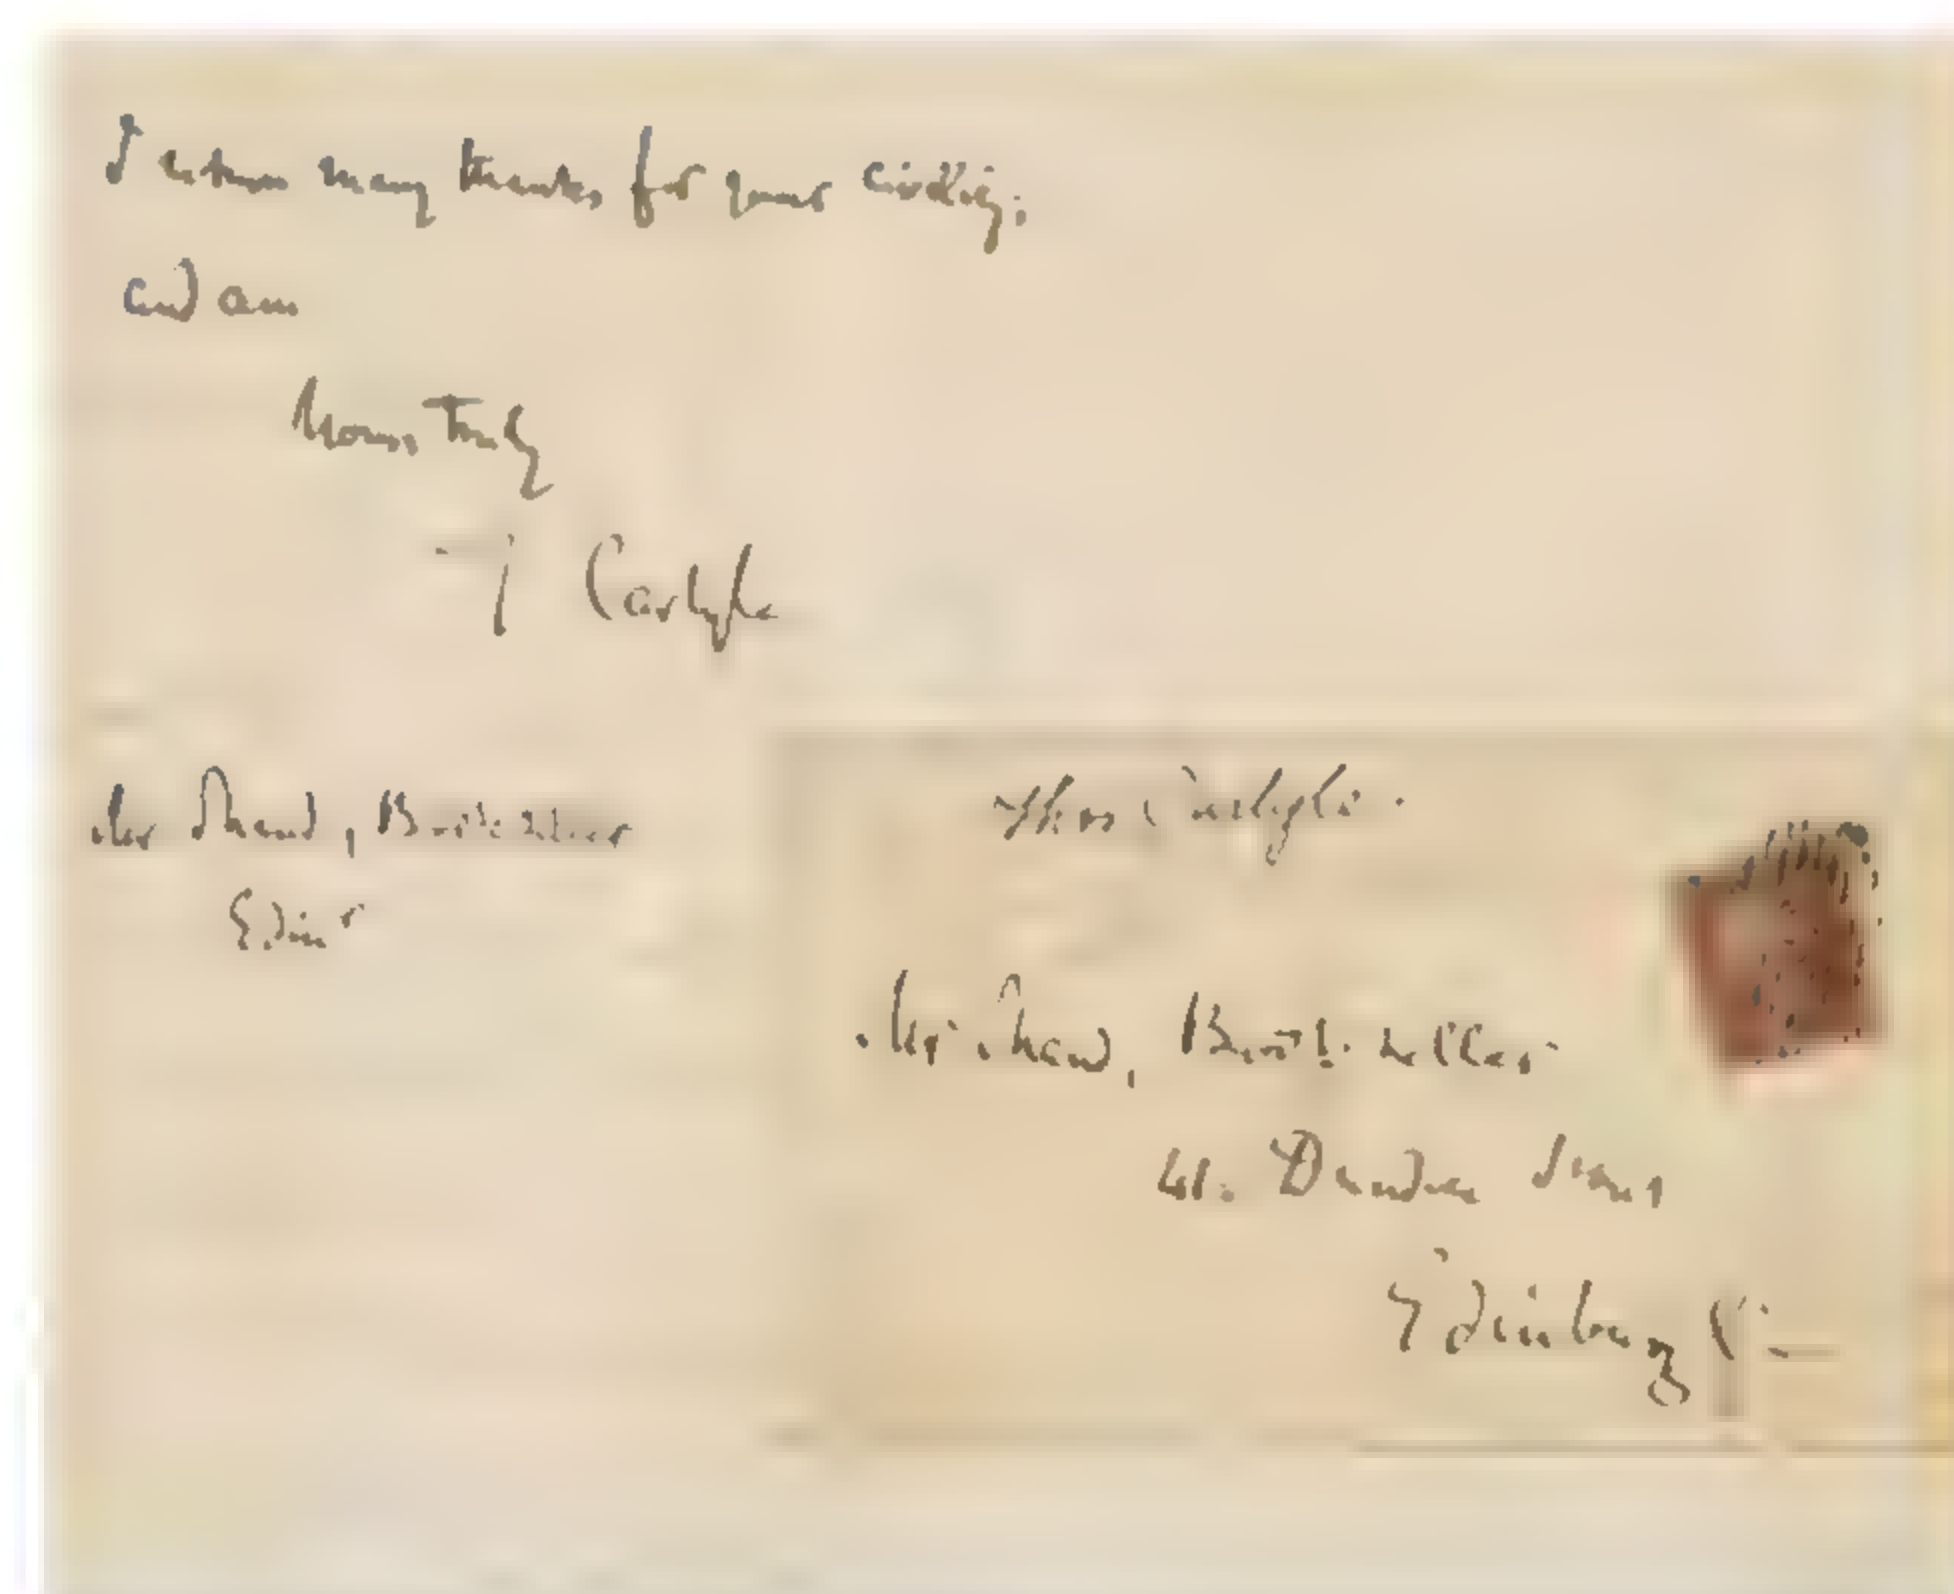 I return many thanks for your civility;
and am
Yours truly
T Carlyle
Mr Shaw, Bookseller
Edinr
Thos Carlyle.
Mr Shaw, Bookseller
41. Dundas Street
Edinburgh